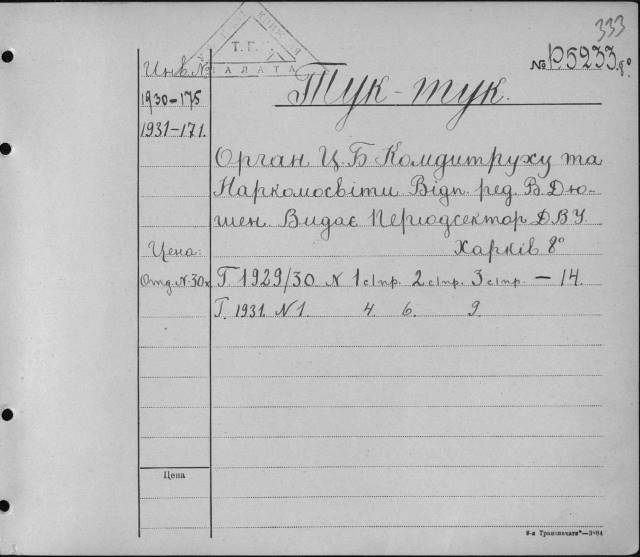 333
№ P5233 8°
Т. Г.
ПАЛАТА
Инв. №
Тук-тук.
1930-175
1931-171.
Орган Ц.Б. Комдитруху та
Наркомосвіти Відп. ред. В. Дю-
шен. Видає Періодсектор ДВУ.
Харків 8°
Цена:
Отд. N. 30к.
Г 1929/30 N 1 с/пр. 2 с/пр. 3 с/пр. — 14.
Г. 1931. N 1. 4. 6. 9.
Цена
8-я Транспечати"—3984